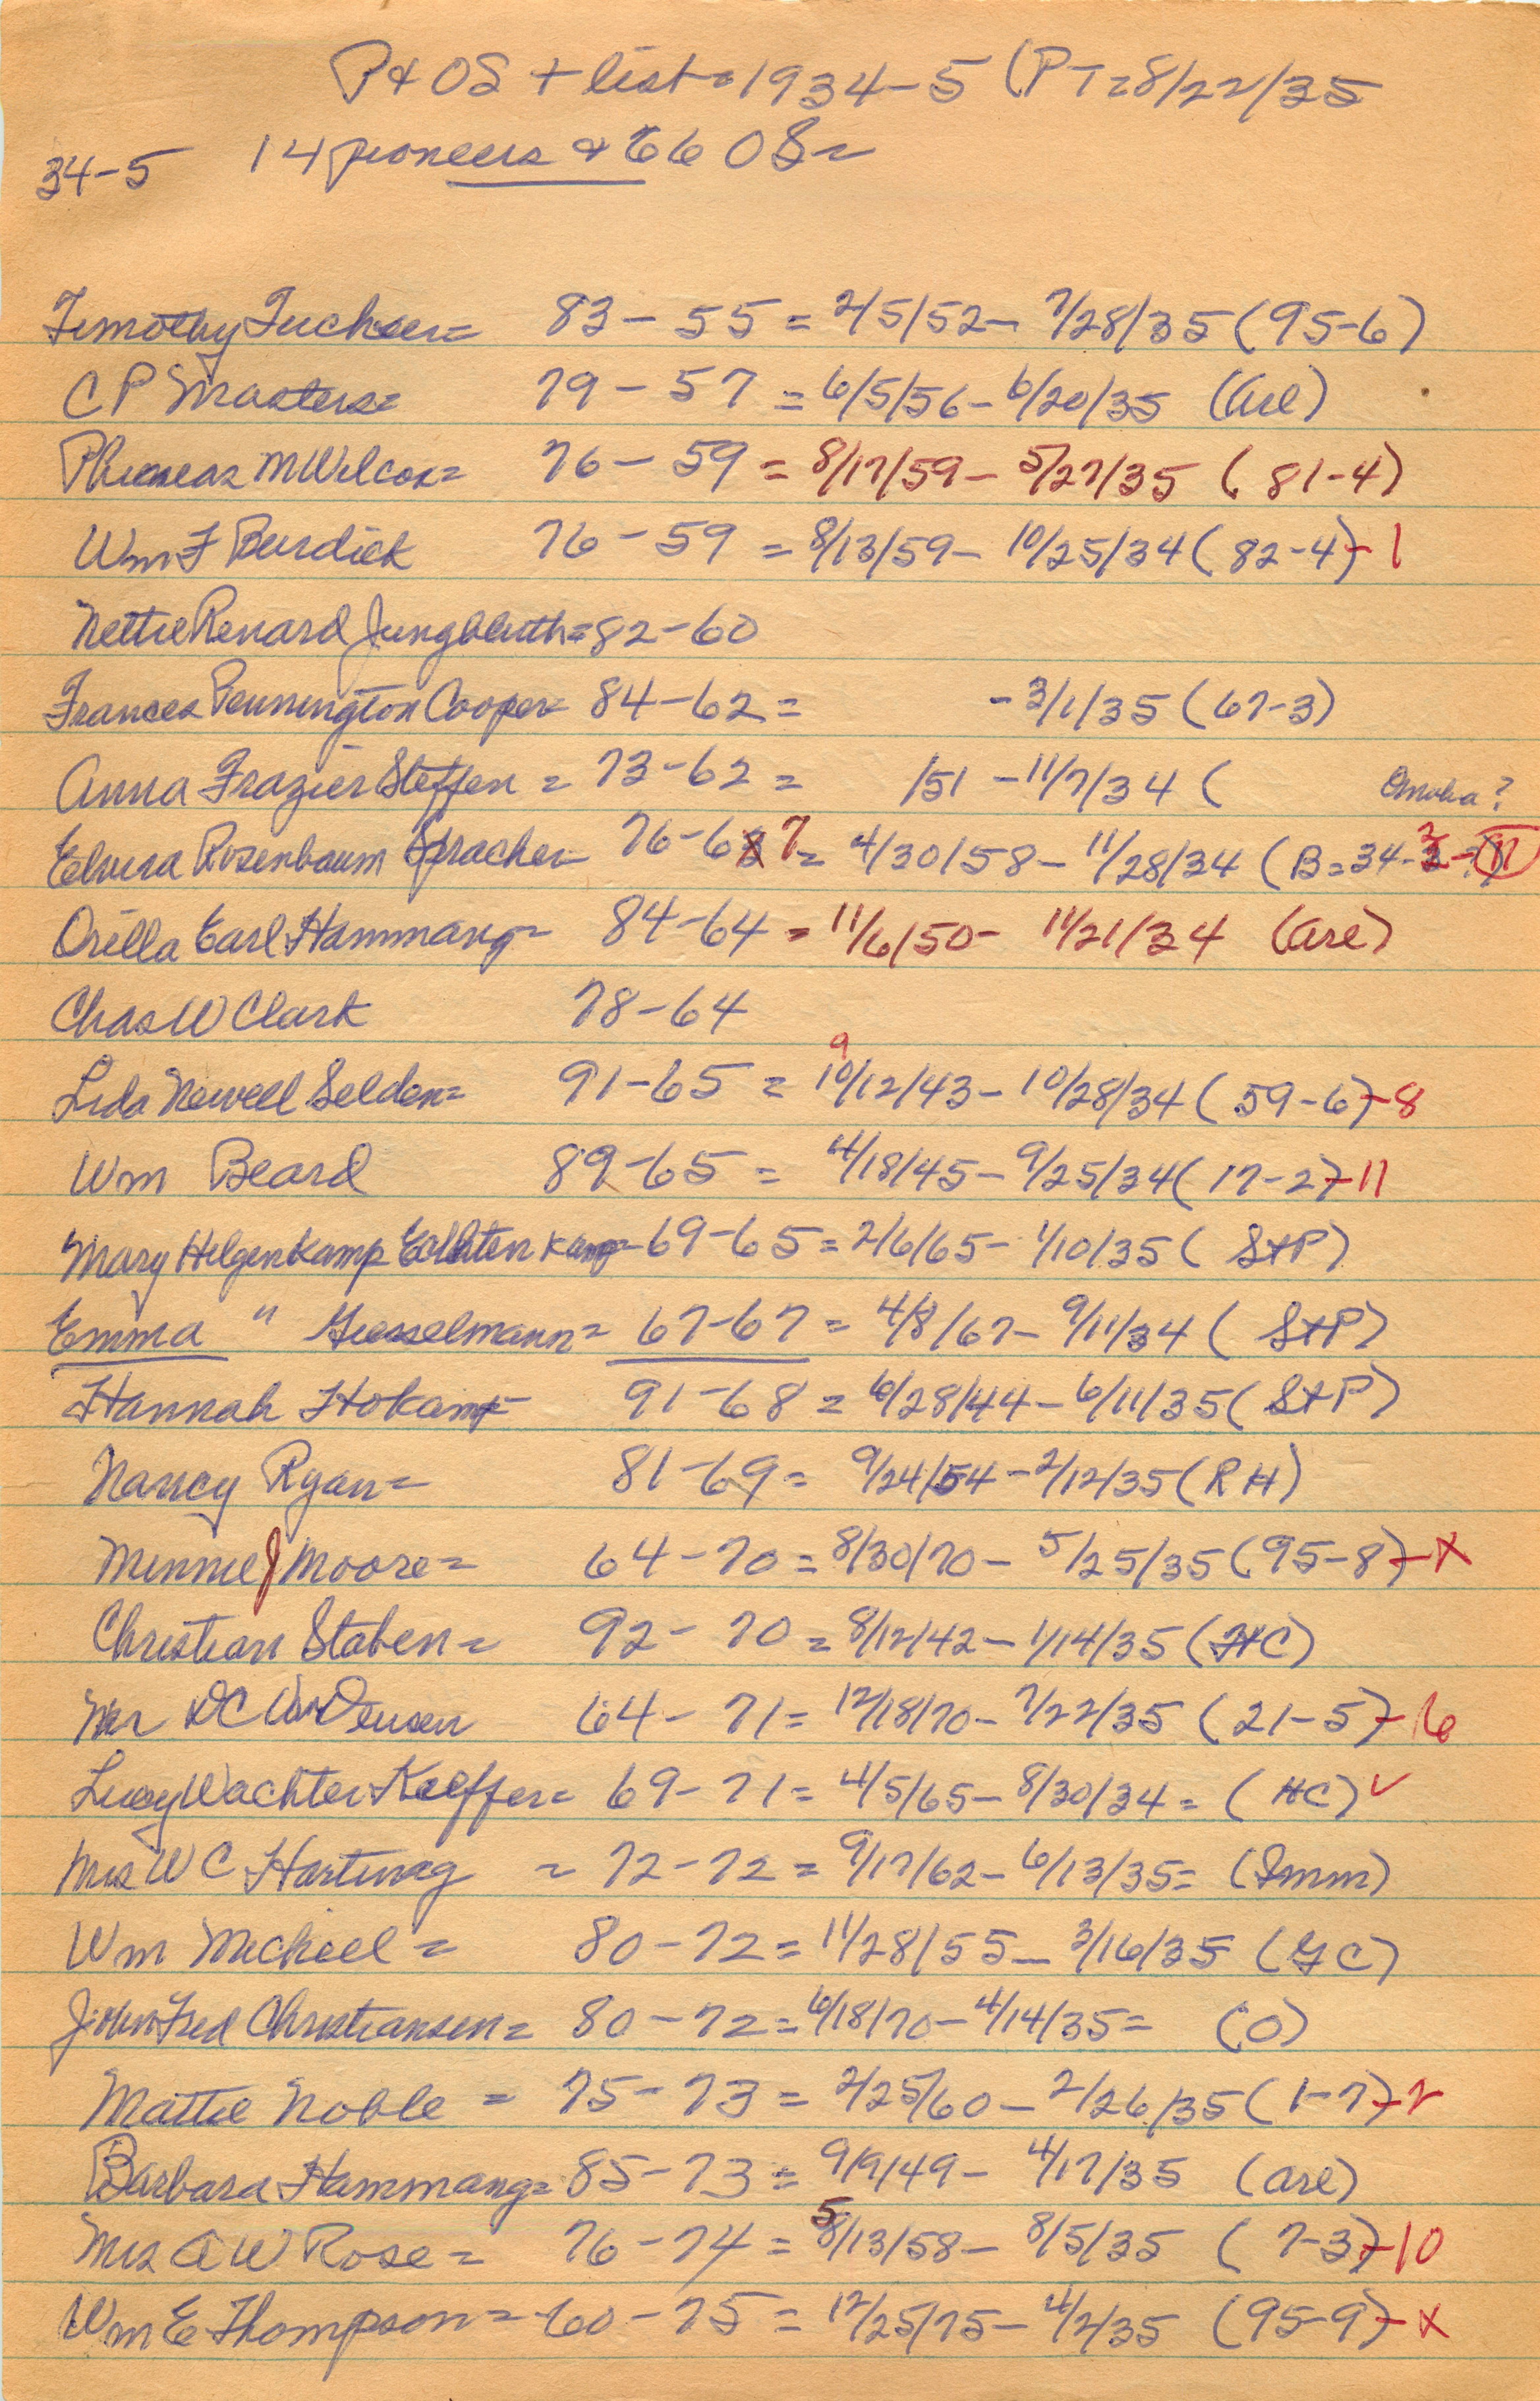 P & OS + list = 1934-5 (PT = 8/22/35
34-5 14 pioneers & 66 OS =
Timothy Tucker = 83 - 55 = 2/5/52 - 7/28/35 (95-6)
C P Masters = 79 - 57 = 6/5/56 - 6/20/35 (Arl)
Phineas M Wilcox = 76 - 59 = 8/17/59 - 5/27/35 (81-4)
Wm F Burdick 76 - 59 = 8/13/59 - 10/25/34 (82-4) - 1
Nettie Renard Jungbluth = 82-60
Frances Pennington Cooper = 84-62 = - 3/1/35 (67-3)
Anna Frazier Steffen = 73-62 = /51 - 11/7/34 ( Omaha?
Elvira Rosenbaum Spracher = 76-6 7 = 4/30/58 - 11/28/34 (B = 34-
Orilla Earl Hammang = 84-64 = 11/6/50 - 11/21/34 (Arl)
Chas W Clark 78-64
9
Lida Newell Selden = 91-65 = 10/12/43 - 10/28/34 (59-6) - 8
Wm Beard 89-65 = 4/18/45 - 9/25/34 (17-2) - 11
Mary Hilgenkamp Echtenkamp = 69-65 = 2/6/65 - 1/10/35 (StP)
Emma " Giesselmann = 67-67 = 4/8/67 - 9/11/34 (StP)
Hannah Hokamp = 91-68 = 6/28/44 - 6/11/35 (StP)
Nancy Ryan = 81-69 = 9/24/54 - 2/12/35 (RH)
Minnie J Moore = 64-70 = 8/30/70 - 5/25/35 (95-8) - X
Christian Staben = 92-70 = 8/12/42 - 1/14/35 (HC)
D C VanDeusen 64-71 = 12/18/70 - 7/22/35 (21-5) - 16
Lucy Wachter Keffer = 69-71 = 4/5/65 - 8/30/34 = (HC) ✓
Mrs W C Hartwag = 72-72 = 9/17/62 - 6/13/35 = (Imm)
Wm Micheel = 80-72 = 11/28/55 - 3/16/35 (GC)
John Fred Christiansen = 80-72 = 6/18/70 - 4/14/35 = (O)
Mattie Noble = 75-73 = 2/25/60 - 2/26/35 (1-7) - 2
Barbara Hammang = 85-73 = 9/9/49 - 4/17/35 (Arl)
5
Mrs A W Rose = 76-74 = 8/13/58 - 8/5/35 (7-3) - 10
Wm E Thompson = 60-75 = 12/25/75 - 4/2/35 (95-9) - X